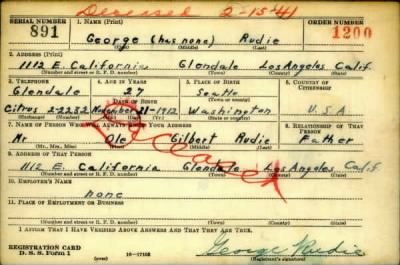 Deceased 2-15-41
SERIAL NUMBER 1. NAME (Print) ORDER NUMBER
891 George (has none) Rudie 1200
(First) (Middle) (Last)
2. ADDRESS (Print)
1112 E. California Glendale Los Angeles Calif.
(Number and street or R. F. D. number) (Town) (County) (State)
3. TELEPHONE 4. AGE IN YEARS 5. PLACE OF BIRTH 6. COUNTRY OF CITIZENSHIP
Glendale 27 Seattle
DATE OF BIRTH (Town or county)
Citrus 2-2252 November 21-1912 Washington U.S.A.
(Exchange) (Number) (Mo.) (Day) (Yr.) (State or country)
7. NAME OF PERSON WHO WILL ALWAYS KNOW YOUR ADDRESS 8. RELATIONSHIP OF THAT PERSON
Mr Ole Gilbert Rudie Father
(Mr., Mrs., Miss) (First) (Middle) (Last)
9. ADDRESS OF THAT PERSON
1112 E. California Glendale Los Angeles Calif.
(Number and street or R. F. D. number) (Town) (County) (State)
10. EMPLOYER'S NAME
none
11. PLACE OF EMPLOYMENT OR BUSINESS
(Number and street or R. F. D. number) (Town) (County) (State)
I AFFIRM THAT I HAVE VERIFIED ABOVE ANSWERS AND THAT THEY ARE TRUE.
REGISTRATION CARD
D. S. S. Form 1 16-17105 George Rudie
(Registrant's signature)